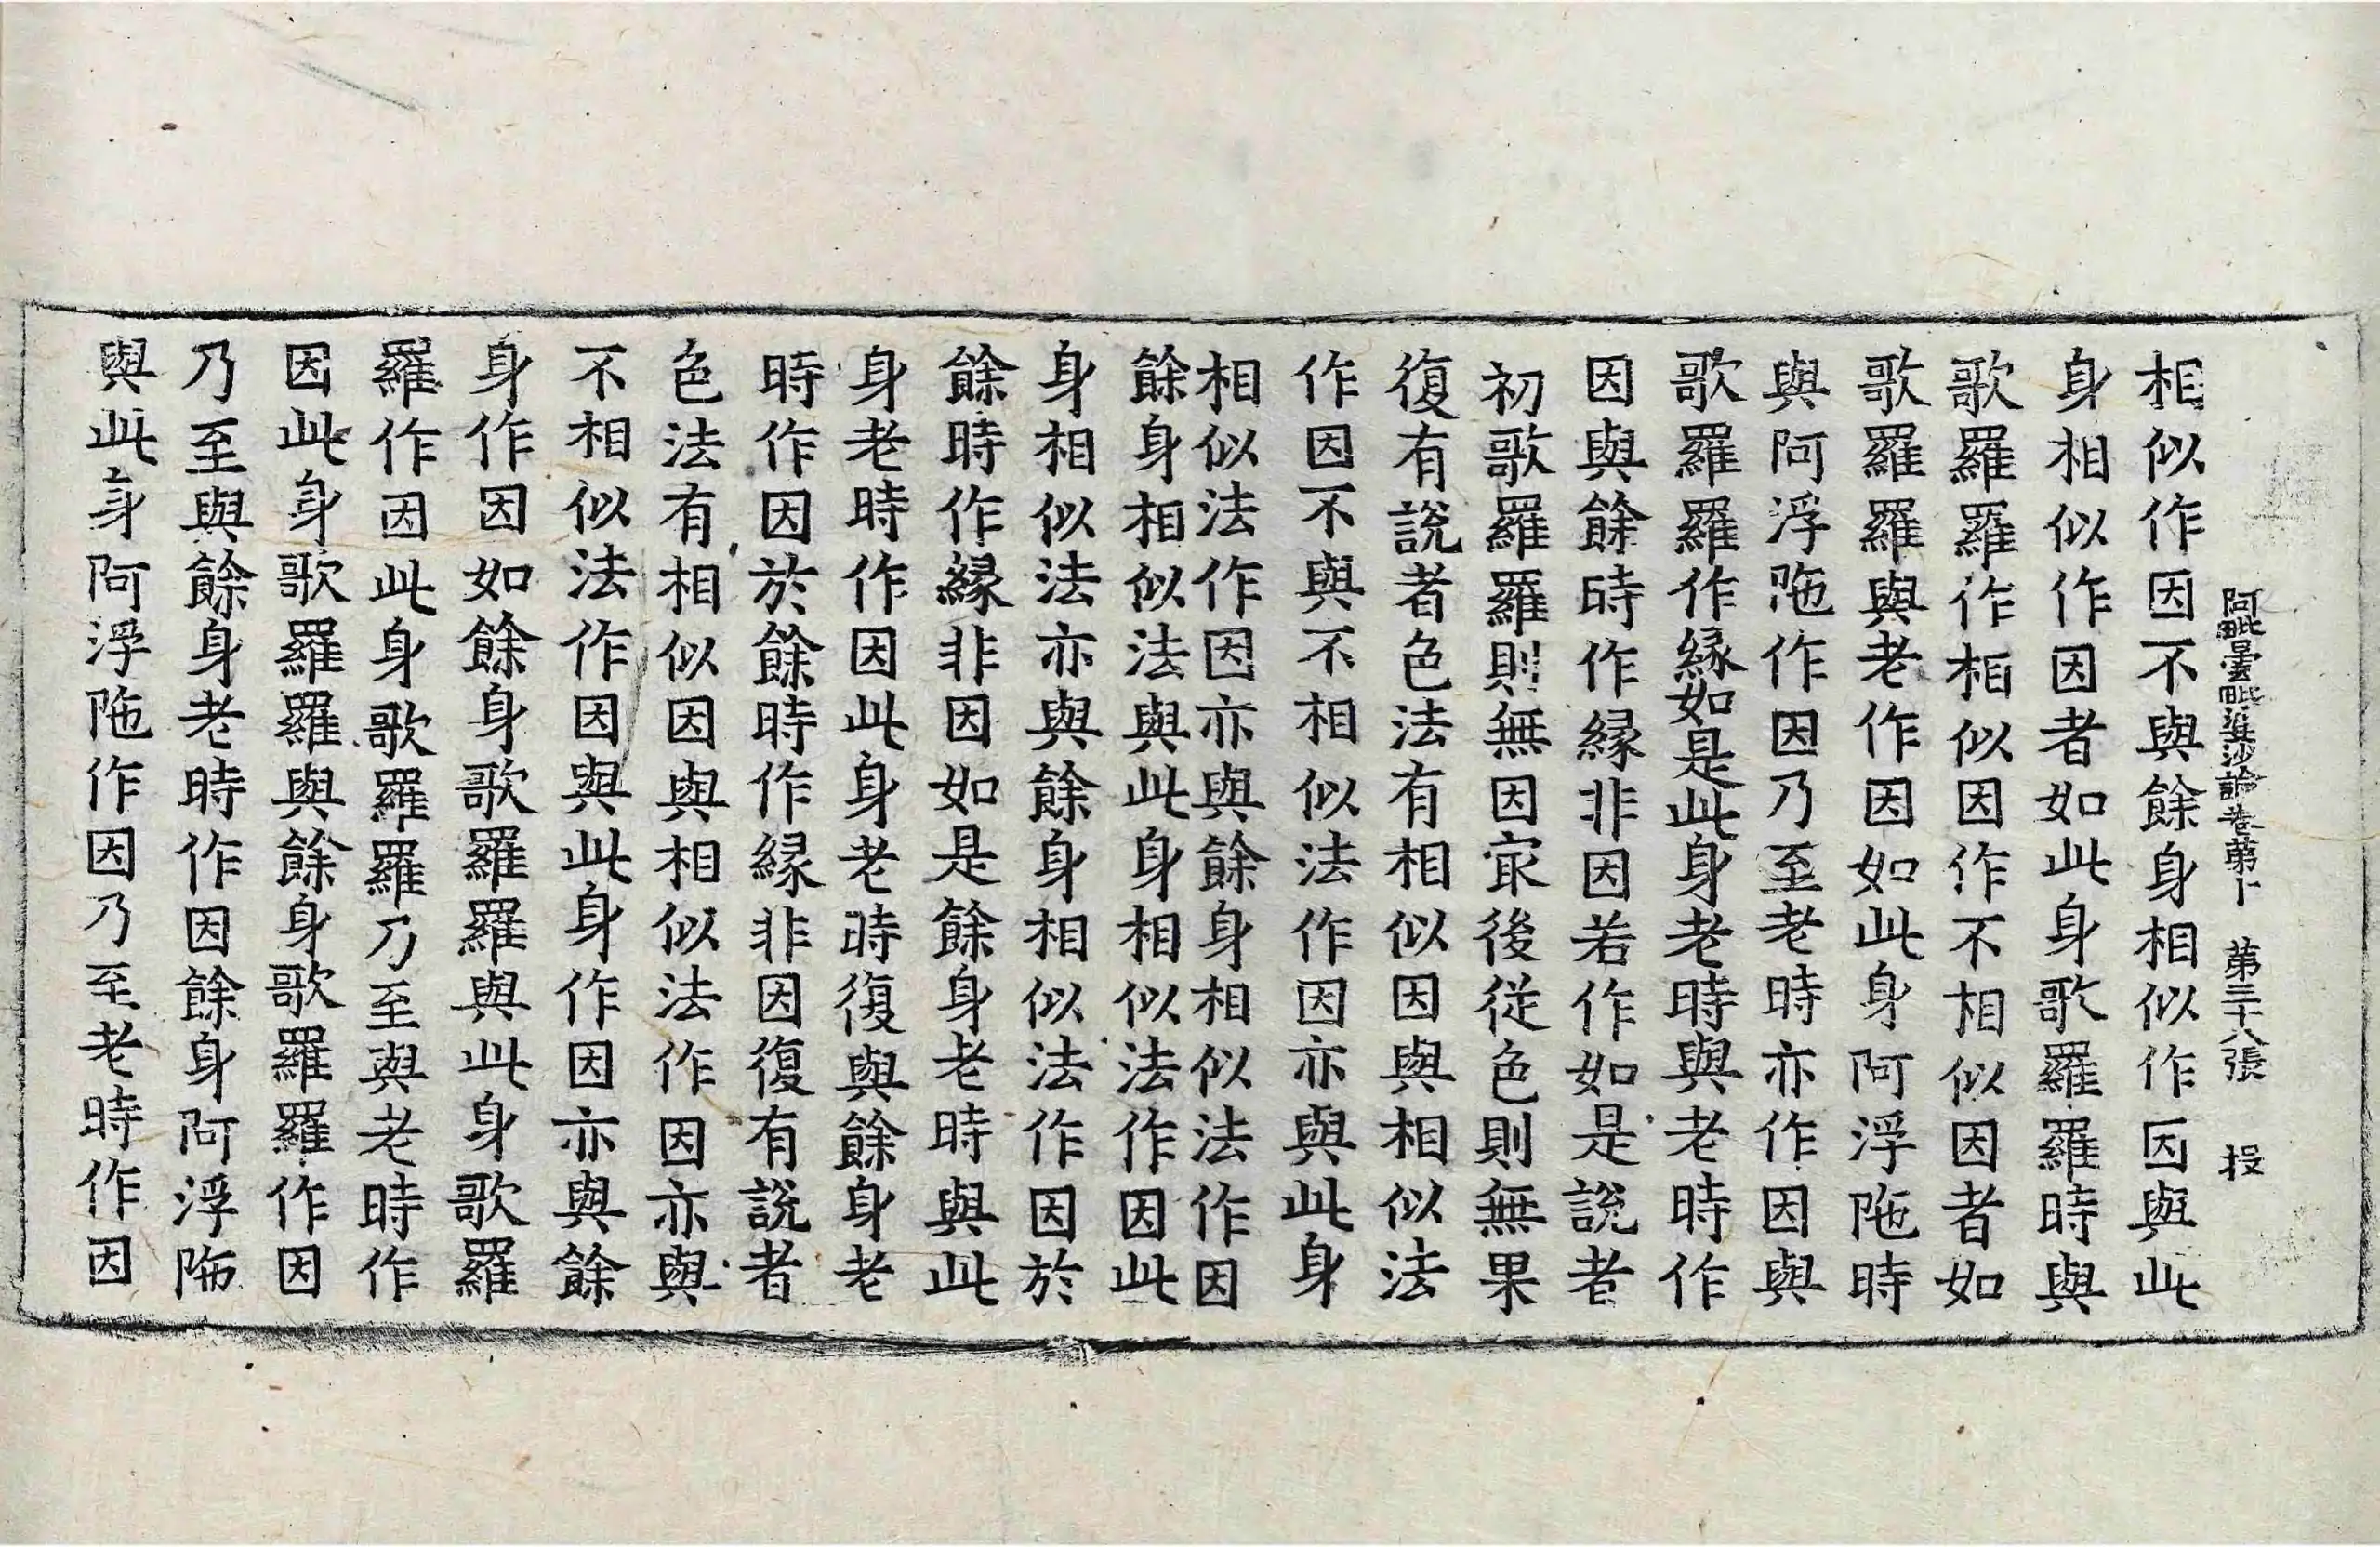 阿毗曇毗婆沙論卷第十 第三十八張 投
相似作因不與餘身相似作因與此
身相似作因者如此身歌羅羅時與
歌羅羅作相似因作不相似因者如
歌羅羅與老作因如此身阿浮陁時
與阿浮陁作因乃至老時亦作因與
歌羅羅作縁如是此身老時與老時作
因與餘時作縁非因若作如是說者
初歌羅羅則無因冣後從色則無果
復有說者色法有相似因與相似法
作因不與不相似法作因亦與此身
相似法作因亦與餘身相似法作因
餘身相似法與此身相似法作因此
身相似法亦與餘身相似法作因於
餘時作縁非因如是餘身老時與此
身老時作因此身老時復與餘身老
時作因於餘時作縁非因復有說者
色法有相似因與相似法作因亦與
不相似法作因與此身作因亦與餘
身作因如餘身歌羅羅與此身歌羅
羅作因此身歌羅羅乃至與老時作
因此身歌羅羅與餘身歌羅羅作因
乃至與餘身老時作因餘身阿浮陁
與此身阿浮陁作因乃至老時作因